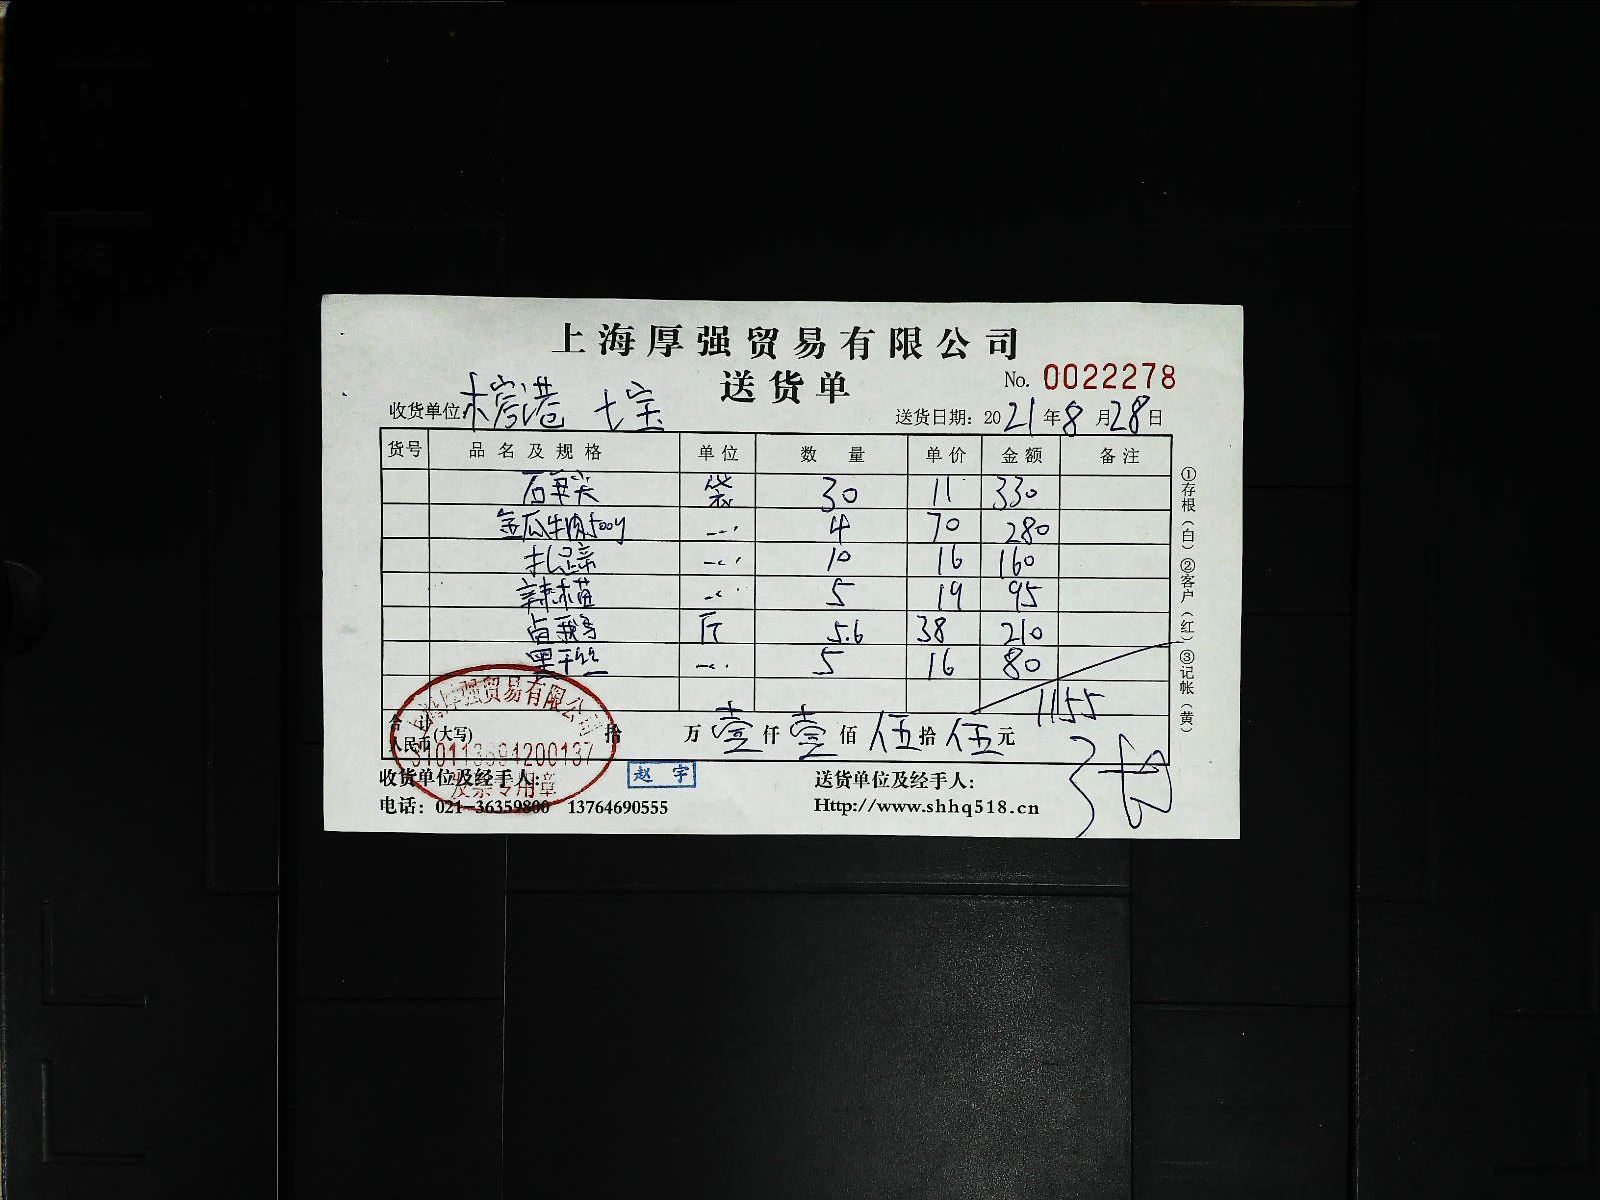 上海厚强贸易有限公司
送货单
No. 0022278
收货单位 七宝
送货日期: 2021年8月28日
货号 品名及规格 单位 数量 单价 金额 备注
袋 30 11 330
金瓜牛肉500g 〃 4 70 280
扎蹄 〃 10 16 160
〃 5 19 95
卤鹅 斤 5.6 38 210
黑干丝 〃 5 16 80
1155
合计人民币(大写) 拾 万 壹 仟 壹 佰 伍 拾 伍 元
收货单位及经手人:
赵宇
送货单位及经手人:
电话: 021-36359800 13764690555
Http://www.shhq518.cn
①存根(白)②客户(红)③记帐(黄)
上海厚强贸易有限公司
发票专用章